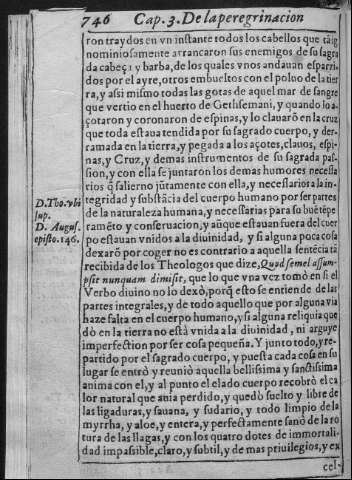 746 Cap. 3. De la peregrinacion
ron traydos en vn instante todos los cabellos que tã ig
nominiosamente arrancaron sus enemigos de su sagra
da cabeça y barba, de los quales vnos andauan esparzi
dos por el ayre, otros embueltos con el poluo de la tier
ra, y assi mismo todas las gotas de aquel mar de sangre
que vertio en el huerto de Gethsemani, y quando lo a-
çotaron y coronaron de espinas, y lo clauarõ en la cruz
que toda estaua tendida por su sagrado cuerpo, y der-
ramada en la tierra, y pegada a los açotes, clauos, espi-
nas, y Cruz, y demas instrumentos de su sagrada pas-
sion, y con ella se juntaron los demas humores necessa
rios q̃ salierno jũtamente con ella, y necessarios a la in-
tegridad y substãcia del cuerpo humano por ser partes
de la naturaleza humana, y necessarias para su buẽ tẽpe
ramẽto y conseruacion, y aũque estauan fuera del cuer
po estauan vnidos a la diuinidad, y si alguna poca cosa
dexarõ por coger no es contrario a aquella sentẽcia tã
recibida de los Theologos que dize, Quod semel assum-
psit nunquam dimisit, que lo que vna vez tomò en si el
Verbo diuino no lo dexò, porq̃ esto se entiende de las
partes integrales, y de todo aquello que por alguna via
haze falta en el cuerpo humano, y si alguna reliquia que
dò en la tierra no està vnida a la diuinidad, ni arguye
imperfection por ser cosa pequeña. Y junto todo, y re-
partido por el sagrado cuerpo, y puesta cada cosa en su
lugar se entrò y reuniò aquella bellissima y sanctissima
anima con el, y al punto el elado cuerpo recobrò el ca
lor natural que auia perdido, y quedò suelto y libre de
las ligaduras, y sauana, y sudario, y todo limpio de la
myrrha, y aloe, y entera, y perfectamente sanò de la ro
tura de las llagas, y con los quatro dotes de immortali-
dad impassible, claro, y subtil, y de mas priuilegios, y ex
cel-
D. Tho. vbi
sup.
D. Augus.
episto. 146.